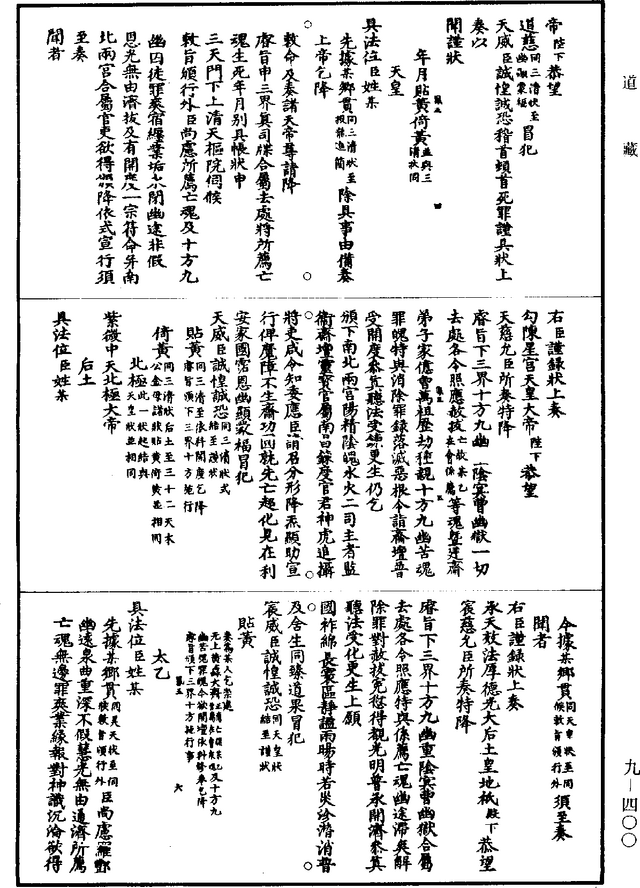 道藏
帝陛下恭望
道慈同三清狀至幽顯蒙恩冒犯
天威臣誠惶誠恐稽首頓首死罪謹具狀上
奏以
聞謹狀
年月貼黃倚黃並與三清狀同
天皇
具法位臣姓某
先據某鄉貫同三清狀至投龍進簡除具事由備奏
上帝乞降
敕命及奏諸天帝尊請降
睿旨申三界真司牒合屬去處將所薦亡
魂生死年月別具帳狀申
三天門下上清天樞院伺候
敕旨頒行外臣尚慮所薦亡魂及十方九
幽囚徒罪爽宿纏業垢永閉幽途非假
恩光無由濟拔及有開度一宗符命并南
北兩宮合屬官吏欲得頒降依式宣行須
至奏
聞者
右臣謹錄狀上奏
勾陳星宮天皇大帝陛下恭望
天慈允臣所奏特降
睿旨下三界十方九幽一切陰冥曹幽獄一切
去處各令照應赦拔亡故某乙在會係薦等魂暨建齋
弟子家億曾萬祖歷劫種親十方九幽苦魂
罪魄特與消除罪錄落滅惡根令詣齋壇普
受開度恭冀聽法受鍊更生仍乞
頒下南北兩宮陽精陰魄水火二司主者監
衛齋壇靈寶官屬南昌鍊度官君神虎追攝
將吏咸令知委應臣請召分形降炁顯助宣
行俾魔障不生齋功圓就先亡超化見在利
安家國霑恩幽顯蒙福冒犯
天威臣誠惶誠恐同三清狀式結至謹狀
貼黃同三清至依科開度乞降睿旨頒下三界十方施行
倚黃同三清狀后土至三十二天木公金母謀狀貼黃倚黃並相同
北極此一狀起結與天皇狀並相同
紫微中天北極大帝
后土
具法位臣姓某
今據某鄉貫同天皇狀至伺候敕旨頒行外須至奏
聞者
右臣謹錄狀上奏
承天效法厚德光大后土皇地祇陛下恭望
宸慈允臣所奏特降
睿旨下三界十方九幽重陰冥曹幽獄合屬
去處各令照應特與係薦亡魂幽途滯爽解
除罪對赦拔冤愆得覩光明普承開濟恭冀
聽法受化更生上願
國祚綿長寰區靜謐雨暘時若災沴潛消普
及含生同臻道果冒犯
宸威臣誠惶誠恐同天皇狀結至謹狀
貼黃
太乙
具法位臣姓某
先據某鄉貫同昊天狀至伺候敕旨頒行外臣尚慮羅酆
幽遠泉曲重深不假慧光無由通濟所薦
亡魂無邊罪爽業緣報對神識沉淪欲得
九-四〇〇